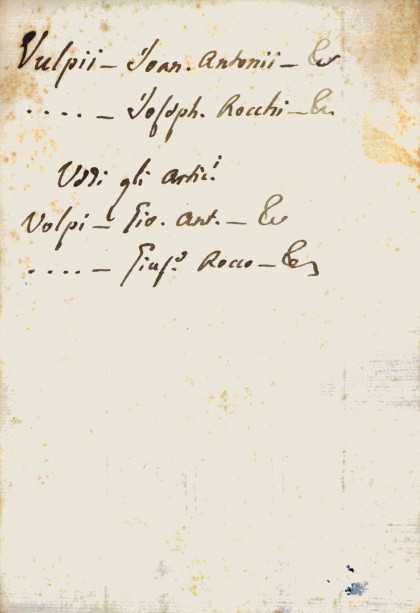 Vulpii – Joan. Antonii – &c
.... – Joseph. Rocchi – &c.
Vedi gli Artic.i
Volpi – Gio. Ant. – &c
.... – Gius.e Rocco – &c